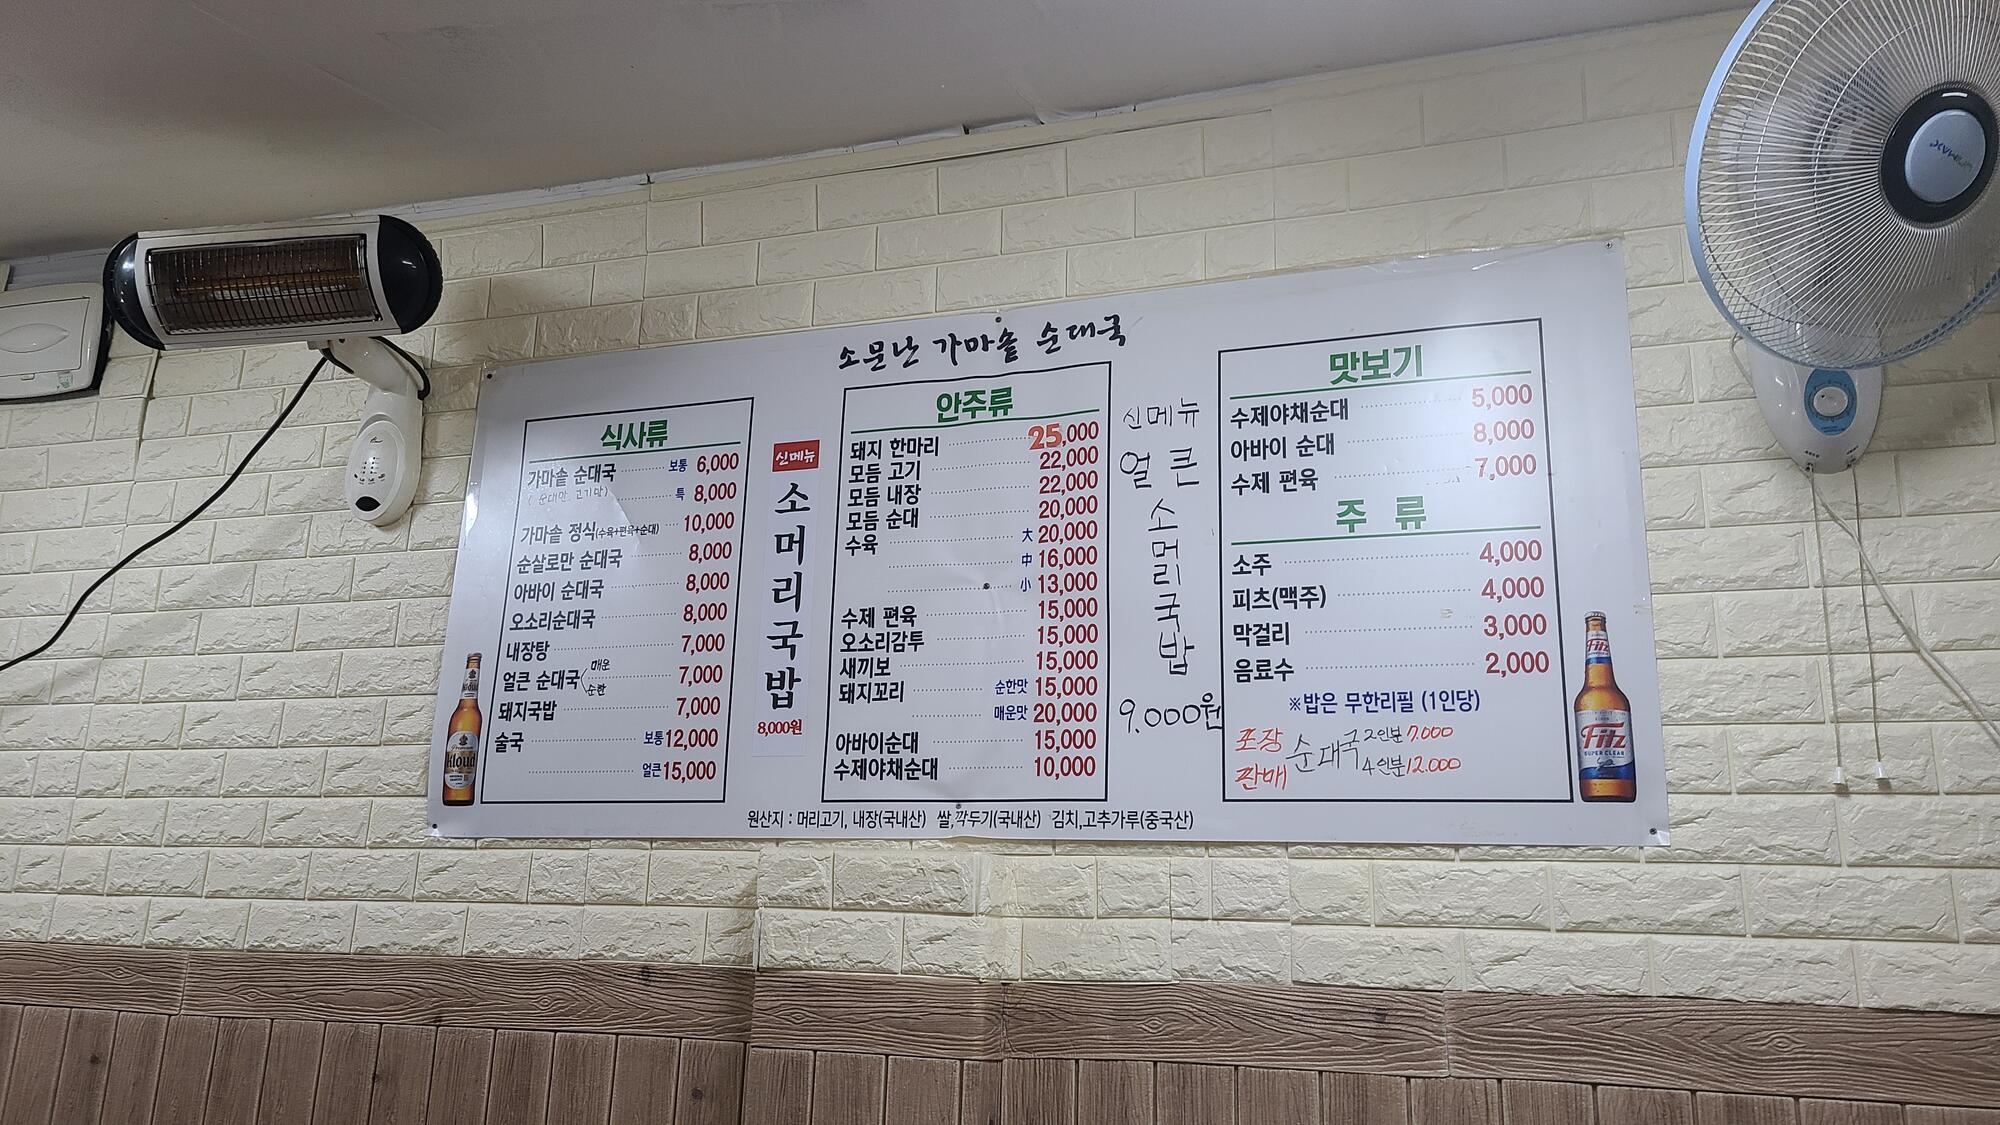 소문난 가마솥 순대국
식사류
가마솥 순대국 보통 6,000
(순대만, 고기만) 특 8,000
가마솥 정식(수육+편육+순대) 10,000
순살로만 순대국 8,000
아바이 순대국 8,000
오소리순대국 8,000
내장탕 7,000
얼큰 순대국 매운 순한 7,000
돼지국밥 7,000
술국 보통 12,000
얼큰 15,000
신메뉴
소머리국밥
8,000원
안주류
돼지 한마리 25,000
모듬 고기 22,000
모듬 내장 22,000
모듬 순대 20,000
수육 大 20,000
中 16,000
小 13,000
수제 편육 15,000
오소리감투 15,000
새끼보 15,000
돼지꼬리 순한맛 15,000
매운맛 20,000
아바이순대 15,000
수제야채순대 10,000
신메뉴
얼큰
소머리국밥
9.000원
맛보기
수제야채순대 5,000
아바이 순대 8,000
수제 편육 7,000
주 류
소주 4,000
피츠(맥주) 4,000
막걸리 3,000
음료수 2,000
※밥은 무한리필 (1인당)
포장 판매 순대국 2인분 7,000
4인분 12.000
원산지 : 머리고기, 내장(국내산) 쌀,깍두기(국내산) 김치,고추가루(중국산)
kloud
Fitz
Fitz
SUPER CLEAR